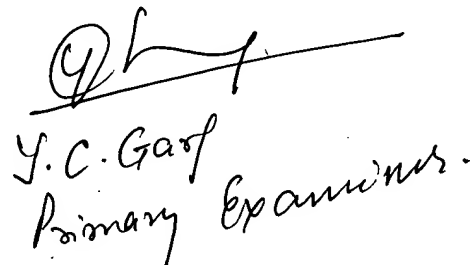 Y.C. Garg
Primary Examiner.